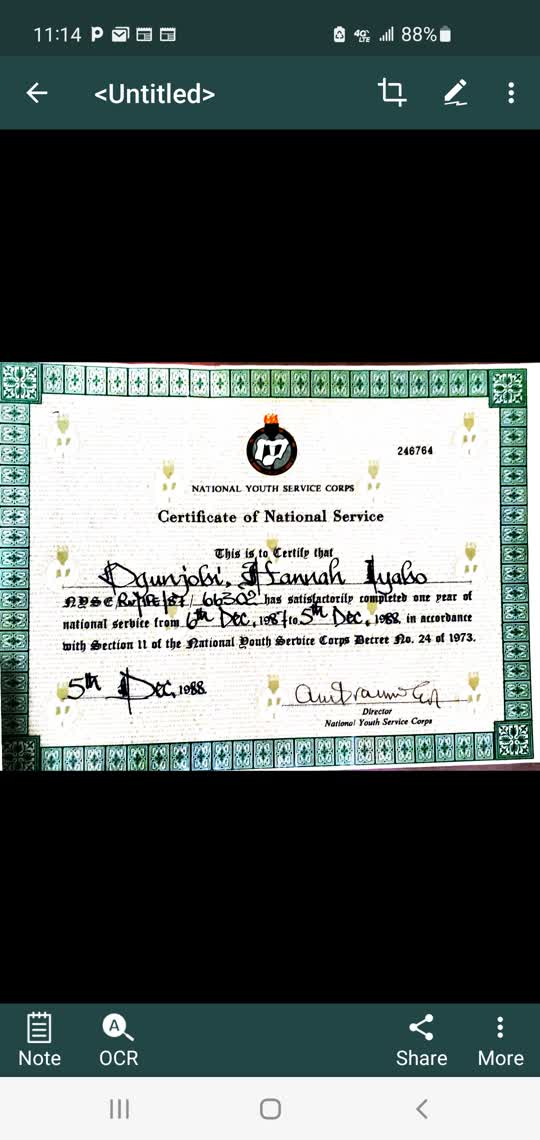 11:14
4G LTE 88%
<Untitled>
246764
NATIONAL YOUTH SERVICE CORPS
Certificate of National Service
This is to Certify that
Ogunjobi, Hannah Iyabo
has satisfactorily completed one year of
national service from 6th Dec. 1987 to 5th Dec. 1988 in accordance
with Section 11 of the National Youth Service Corps Decree No. 24 of 1973.
5th Dec, 1988
Director
National Youth Service Corps
Note OCR Share More